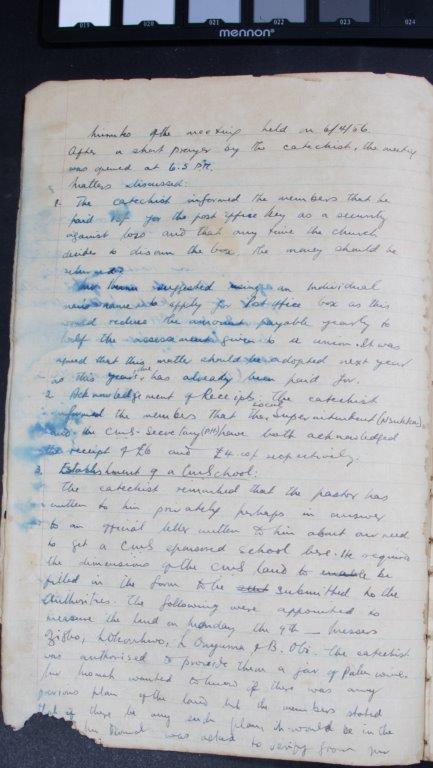 019 020 021 022 023 024
mennon
Minutes of the meeting held on 6/4/56.
After a short prayer by the catechist, the meeting
was opened at 6.5 P.M.
Matters discussed:
1. The catechist informed the members that he
paid for the post office key as a security
against loss and that any time the church
decides to disown the box, the money should be
returned.
suggested using an individual
name to apply for Post Office box as this
would reduce the amount payable yearly to
half the assessment given to a union. It was
agreed that this matter should be adopted next year
as this year's has already been paid for.
2. Acknowledgement of Receipts. The catechist
informed the members that the Superintendent (Nsukka)
and the CMS Secretary (PH) have both acknowledged
the receipt of £6 and £4 respectively.
3. Establishment of a CMS School:
The catechist remarked that the pastor has
written to him privately perhaps in answer
to an official letter written to him about our need
to get a CMS sponsored school here. He requires
the dimensions of the CMS land to be
filled in the form to be submitted to the
authorities. The following were appointed to
measure the land on Monday the 9th — Messrs
L. Onyuma & B. Obi. The catechist
was authorised to provide them a jar of Palm wine.
Mr wanted to know if there was any
previous plan of the land but the members stated
that if there be any such plan it would be in the
was asked to verify from Mr